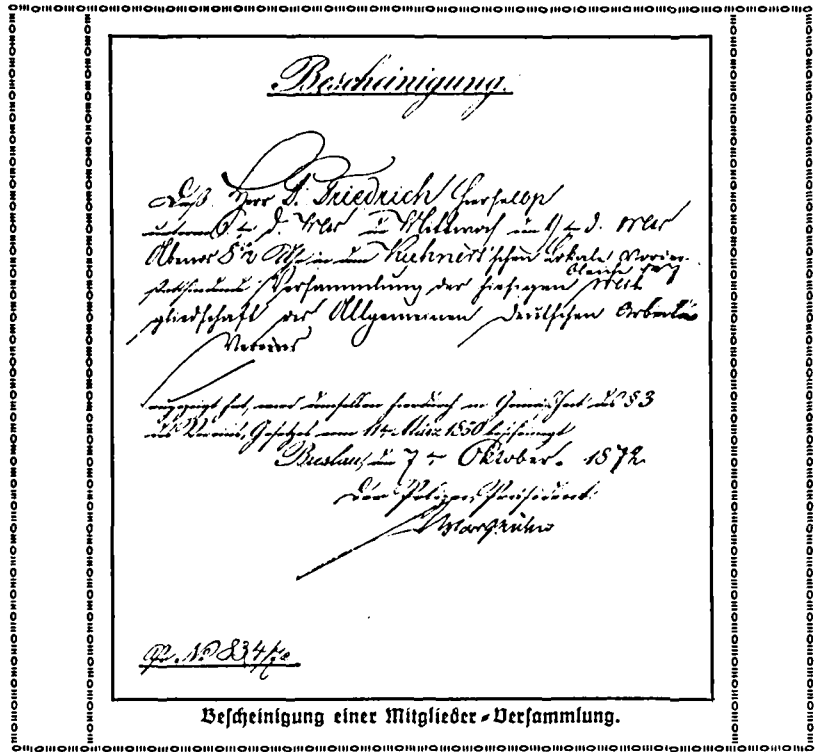 Bescheinigung.
Daß Herr D. Friedrich hierselbst
d. Mts Mittwoch d. Mts
Abends 8½ Uhr in dem schen Lokale
stattfindende Versammlung der hiesigen Mit
gliedschaft des Allgemeinen Deutschen Arbeiter
Vereins
angezeigt hat, wird demselben hierdurch in Gemäßheit des § 3
des Vereins-Gesetzes vom 11ten März 1850 bescheinigt
Breslau, den 7ten Oktober 1872
Der Polizei-Präsident.
Bescheinigung einer Mitglieder-Versammlung.